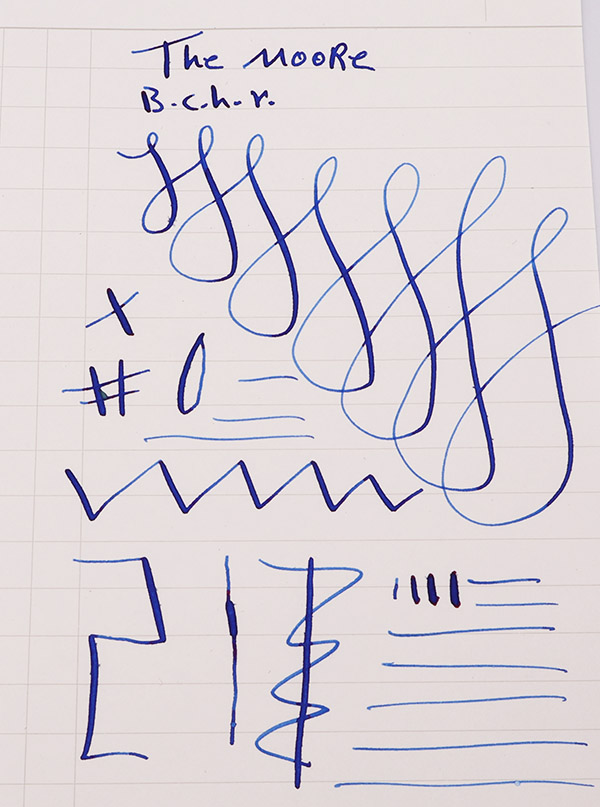 The MOORE
B.c.h.r.
x
# 0